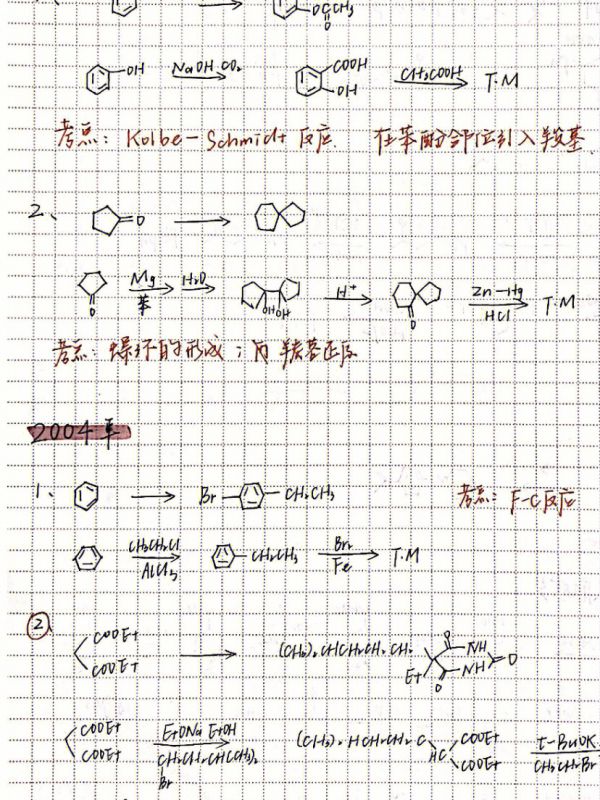 OCCH₃
O
OH NaOH CO₂ COOH OH CH₃COOH T·M
考点: Kolbe-Schmidt 反应. 在苯酚邻位引入羧基.
2、 =O
O Mg 苯 H₂O OH OH H⁺ O Zn-Hg HCl T·M
考点: 螺环的形成; 羰基还原
2004年
1、 Br CH₂CH₃ 考点: F-C反应
CH₃CH₂Cl AlCl₃ CH₂CH₃ Br₂ Fe T·M
② COOEt COOEt (CH₃)₂CHCH₂CH₂ Et O NH O NH O
COOEt COOEt EtONa EtOH CH₂CH₂CH(CH₃)₂ Br COOEt HC COOEt t-BuOK CH₃CH₂Br